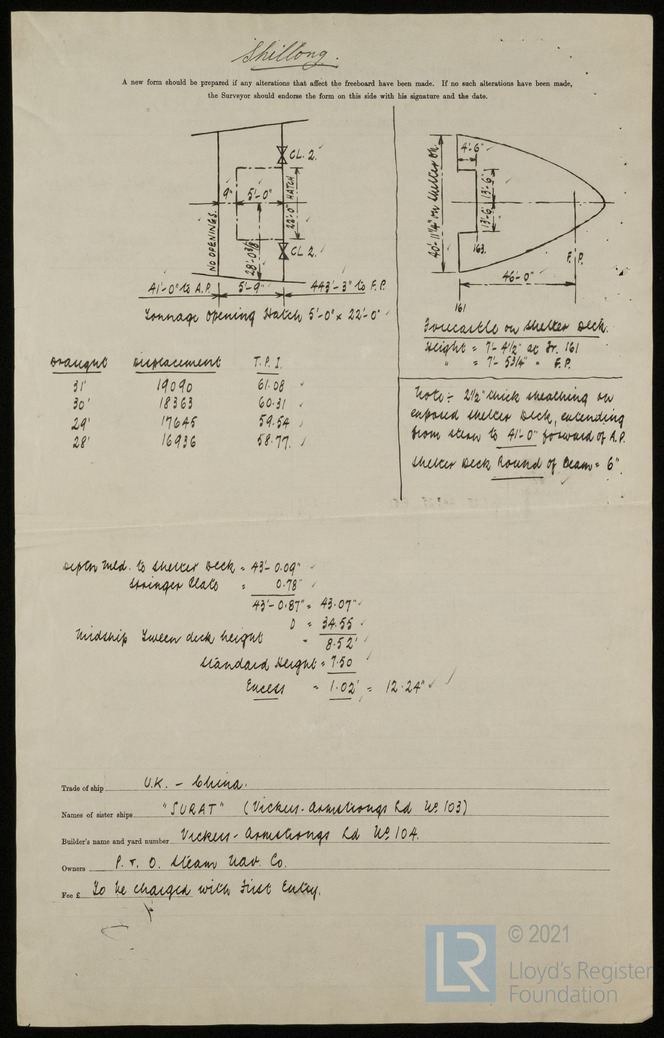 Shillong.
A new form should be prepared if any alterations that affect the freeboard have been made. If no such alterations have been made,
the Surveyor should endorse the form on this side with his signature and the date.
CL. 2.
9"
5'-0"
22'-0" HATCH
NO OPENINGS.
28'-0 3/8"
CL 2.
41'-0" to A.P.
5'-9"
443'-3" to F.P.
Tonnage Opening Hatch 5'-0" x 22'-0"
4'-6"
40'-11 1/4" on Shelter Dk.
13'-6"
13'-6"
163.
F.P.
46'-0"
161
Forecastle on Shelter Deck.
Height = 7'-4 1/2" at Fr. 161
" = 7'-5 3/4" " F.P.
Draught Displacement T.P.I.
31' 19090 61.08
30' 18363 60.31
29' 17645 59.54
28' 16936 58.77.
Note :- 2 1/2" thick sheathing on
exposed shelter deck, extending
from stern to 41'-0" forward of A.P.
Shelter Deck Round of Beam = 6".
Depth Mld. to Shelter Deck = 43'-0.09"
Stringer Plate = 0.78"
43'-0.87" = 43.07'
D = 34.55
Midship Tween deck height = 8.52'
Standard Height = 7.50
Excess = 1.02' = 12.24"
Trade of ship U.K. - China.
Names of sister ships "SURAT" (Vickers-Armstrongs Ld No 103)
Builder's name and yard number Vickers-Armstrongs Ld No 104.
Owners P. & O. Steam Nav. Co.
Fee £ To be charged with First Entry.
LR
© 2021
Lloyd's Register
Foundation